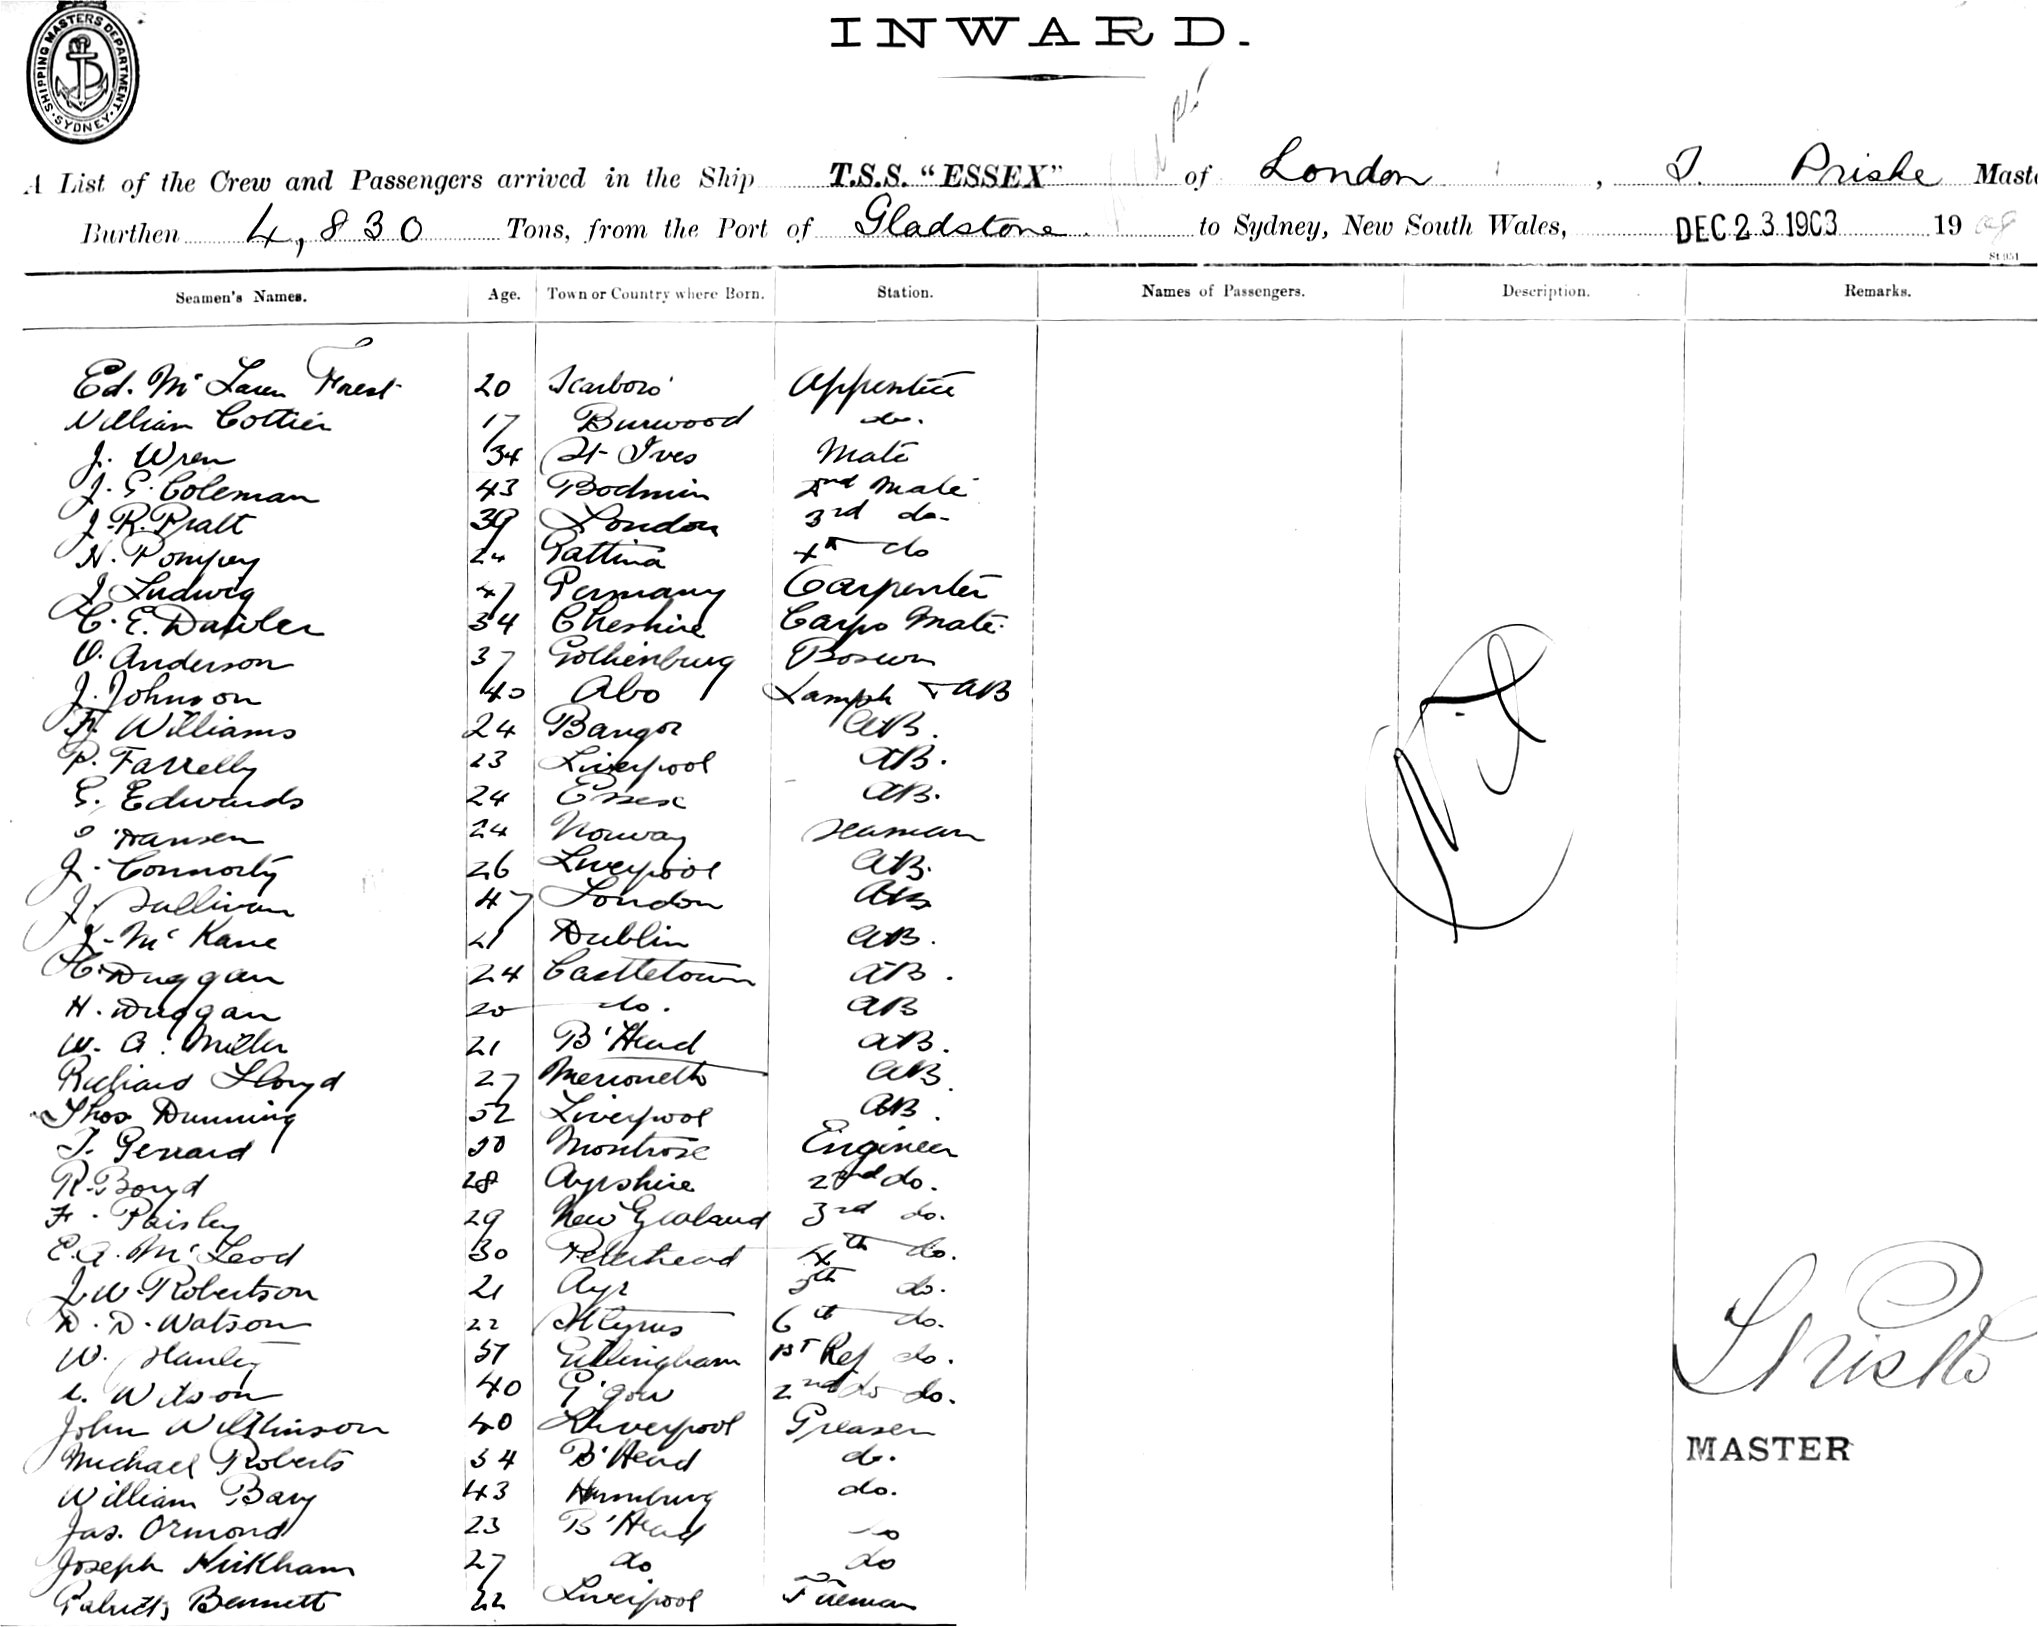 SHIPPING MASTERS DEPARTMENT. SYDNEY.
INWARD.
A List of the Crew and Passengers arrived in the Ship T.S.S. "ESSEX" of London, T. Priske Maste
Burthen 4,830 Tons, from the Port of Gladstone to Sydney, New South Wales, DEC 23 1903 19
Seamen's Names. Age. Town or Country where Born. Station. Names of Passengers. Description. Remarks.
Ed. Mc Laren Forest 20 Scarboro' Apprentice
William Cottier 17 Burwood do.
J. Wren 34 St Ives Mate
J. G. Coleman 43 Bodmin 2nd Mate
J. R. Pratt 39 London 3rd do.
H. Pompey 24 4th do
J Ludwig 47 Germany Carpenter
C. E. 34 Cheshire Carps Mate.
O. Anderson 37 Gothenburg Bosun
J. Johnson 40 Abo Lamps & AB
H. Williams 24 Bangor AB.
P. Farrelly 23 Liverpool AB.
G. Edwards 24 Essex AB.
Hansen 24 Norway Seaman
J. Connorty 26 Liverpool AB.
J. Sullivan 47 London AB
J. Mc Kane 21 Dublin AB.
C. Duggan 24 Castletown AB.
H. Duggan 20 do. AB
W. A. Miller 21 B'Head AB.
Richard Lloyd 27 Merioneth AB.
Thos Dunning 52 Liverpool AB.
T. Gerrard 50 Montrose Engineer
R. Boyd 28 Ayrshire 2nd do.
F. Paisley 29 New Zealand 3rd do.
E. A. Mc Leod 30 Peterhead 4th do.
J. W. Robertson 21 Ayr 5th do.
D. D. Watson 22 St Cyrus 6th do.
W. Hanley 51 Gillingham 1st Ref do.
Wilson 40 G'gow 2nd do do.
John Wilkinson 40 Liverpool Greaser
Michael Roberts 34 B'Head do.
William Bary 43 Hamburg do.
Jas. Ormond 23 B'Head do
Joseph Kirkham 27 do do
Patrick Bennett 22 Liverpool Fireman
Nil
T Priske
MASTER